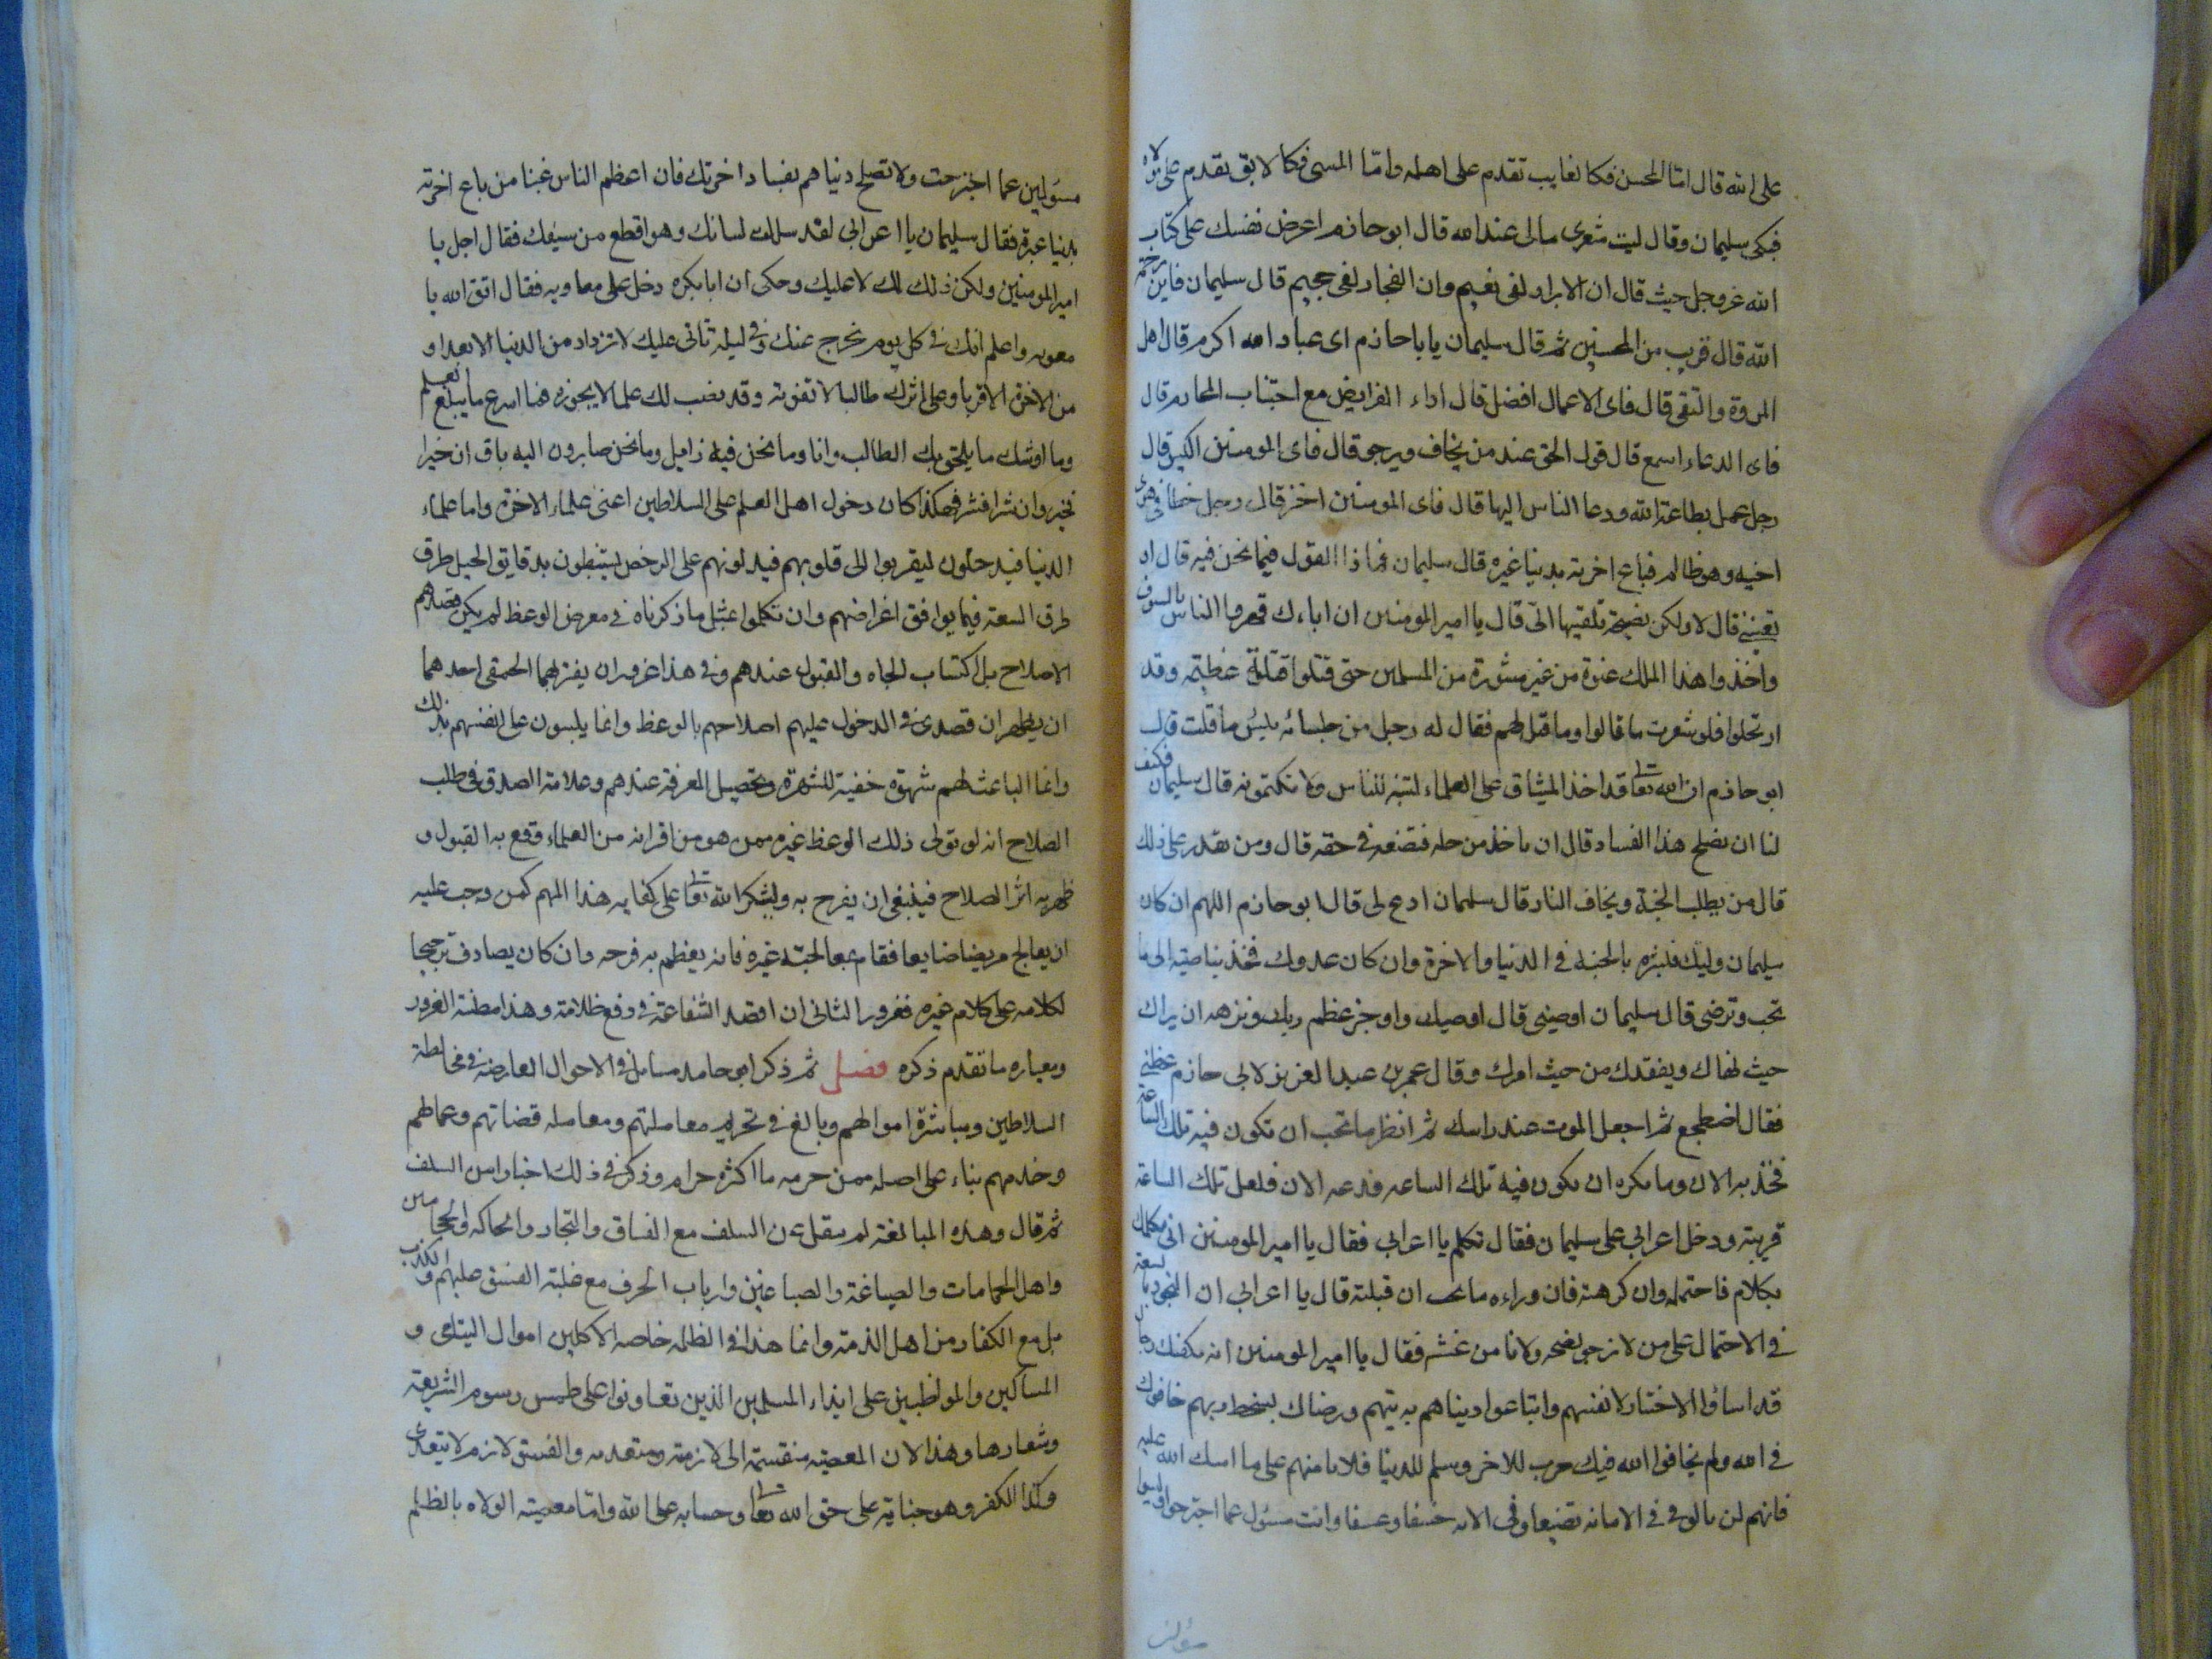 على الله قال امّا المحسن فكالغايب تقدم على اهله وامّا المسئ فكالابق يقدم على مولاه
فبكى سليمان وقال ليت شعرى مالى عند الله قال ابو حازم اعرض نفسك على كتاب
الله عز وجل حيث قال ان الابرار لفى نعيم وان الفجار لفى جحيم قال سليمان فاين رحمة
الله قال قريب من المحسنين ثم قال سليمان يا باحازم اى عباد الله اكرم قال اهل
المروة والتقى قال فاى الاعمال افضل قال اداء الفرايض مع اجتناب المحارم قال
فاى الدعاء اسمع قال قول الحق عند من يخاف ويرجى قال فاى المومنين اكيس قال
رجل عمل بطاعة الله ودعا الناس اليها قال فاى المومنين اخسر قال رجل خطا فى هوى
اخيه وهو ظالم فباع اخرته بدنيا غيره قال سليمان فماذا القول فيما نحن فيه قال او
تعفينى قال لا ولكن نصيحة تلقيها الىّ قال يا امير المومنين ان اباءك قهروا الناس بالسيوف
واخذوا هذا الملك عنوة من غير مشورة من المسلمين حتى قتلوا قتلة عظيمة وقد
ارتحلوا فلو شعرت ما قالوا وما قيل لهم فقال له رجل من جلسائه بئس ما قلت قال
ابو حازم ان الله تعا قد اخذ الميثاق على العلماء لتبينه للناس ولا تكتمونه قال سليمان فكيف
لنا ان نصلح هذا الفساد قال ان ناخذ من حله فتضعه فى حقه قال ومن يقدر على ذلك
قال من يطلب الجنة ويخاف النار قال سليمان ادع لى قال ابو حازم اللهم ان كان
سليمان وليك فيسره بالجنة فى الدنيا والاخرة وان كان عدوك فخذ بناصيته الى ما
تحب وترضى قال سليمان اوصينى قال اوصيك واوجز عظم ربك ونزهه ان يراك
حيث نهاك ويفقدك من حيث امرك وقال عمر بن عبد العزيز لابى حازم عظنى
فقال اضطجع ثم اجعل الموت عند راسك ثم انظر ما تحب ان تكون فيه تلك الساعة
فخذ به الان وما تكره ان يكون فيه تلك الساعه فدعه الان فلعل تلك الساعة
قريبة ودخل اعرابى على سليمان فقال تكلم يا اعرابى فقال يا امير المومنين انى مكلمك
بكلام فاحتمله وان كرهته فان وراءه ما تحب ان قبلته قال يا اعرابى ان لنجود بسعة
فى الاحتمال على من لا نرجى نصحه ولا نامن غشه فقال يا امير المومنين انه يكنفك رجال
قد اساؤا الاختيار لانفسهم وابتاعوا دنياهم بدينهم ورضاك بسخط ربهم خافوك
فى الله ولم يخافوا الله فيك حرب للاخرة وسلم للدنيا فلا تامنهم على ما امنك الله عليه
فانهم لن يالوا فى الامانه تضييعا وفى الامه خسفا وعسفا وانت مسئول عما اجترحوا وليسوا
مسؤلين
مسؤلين عما اجترحت ولا تصلح دنياهم بفساد اخرتك فان اعظم الناس غبنا من باع اخرته
بدنيا غيره فقال سليمان يا اعرابى لقد سللت لسانك وهو اقطع من سيفك فقال اجل يا
امير المومنين ولكن ذلك لك لا عليك وحكى ان ابا بكره دخل على معاويه فقال اتق الله يا
معويه واعلم انك فى كل يوم يخرج عنك وفى ليلة تاتى عليك لا تزداد من الدنيا الا بعدا و
من الاخرة الا قربا وعلى اثرك طالبا لا تفوته وقد نصب لك علما لا يجوزه فما اسرع ما يبلغ العلم
وما اوشك ما يلحق بك الطالب وانا وما نحن فيه زايل وما نحن صايرون اليه باق ان خيرا
فخير وان شرا فشر فهكذا كان دخول اهل العلم على السلاطين اعنى علماء الاخرة واما علماء
الدنيا فيدخلون ليتقربوا الى قلوبهم فيدلونهم على الرخص ليستنبطون بدقايق الحيل طرق
طرق السعة فيما يوافق اغراضهم وان تكلموا بمثل ما ذكرناه فى معرض الوعظ لم يكن قصدهم
الاصلاح بل اكتساب الجاه والقبول عندهم وفى هذا غروران يغتر بهما الحمقى احدهما
ان يظهر ان قصدى فى الدخول عليهم اصلاحهم بالوعظ وانما يلبسون على انفسهم بذلك
وانما الباعث لهم شهوة خفية للشهرة وتحصيل المعرفة عندهم وعلامة الصدق فى طلب
الصلاح انه لو تولى ذلك الوعظ غيره ممن هو من اقرانه من العلماء وقع به القبول و
ظهر به اثر الصلاح فينبغى ان يفرح به ويشكر الله تعا على كفايه هذا المهم كمن وجب عليه
ان يعالج مريضا ضايعا فقام بمعالجته غيره فانه يعظم به فرحه وان كان يصادف ترجيحا
لكلامه على كلام غيره فغرور الثانى ان اقصد الشفاعة فى دفع ظلامة وهذا مظنة الغرور
ومعياره ما تقدم ذكره فصل ثم ذكر ابى حامد مسايل فى الاحوال العارضه فى مخالطة
السلاطين ومباشرة اموالهم وبالغ فى تحريم معاملتهم ومعاملة قضاتهم وعمالهم
وخدمهم بناء على اصله ممن حرمه ما اكثره حرام وذكر فى ذلك اخبارا من السلف
ثم قال وهذه المبالغة لم ينقل عن السلف مع الفساق والتجار والحاكه والحجامين
واهل الحمامات والصياغة والصباغين وارباب الحرف مع غلبة الفسق عليهم والكذب
بل مع الكفار من اهل الذمة وانما هذا فى الظلمه خاصه الاكلين اموال اليتامى و
المساكين والمواظبين على ايذاء المسلمين الذين تعاونوا على طمس رسوم الشريعة
وشعارها وهذا لان المعصية منقسمة الى لازمة ومتعديه والفسق لازم لا يتعدى
وكذا الكفر وهو جناية على حق الله تعا وحسابه على الله وامّا معصية الولاه بالظلم